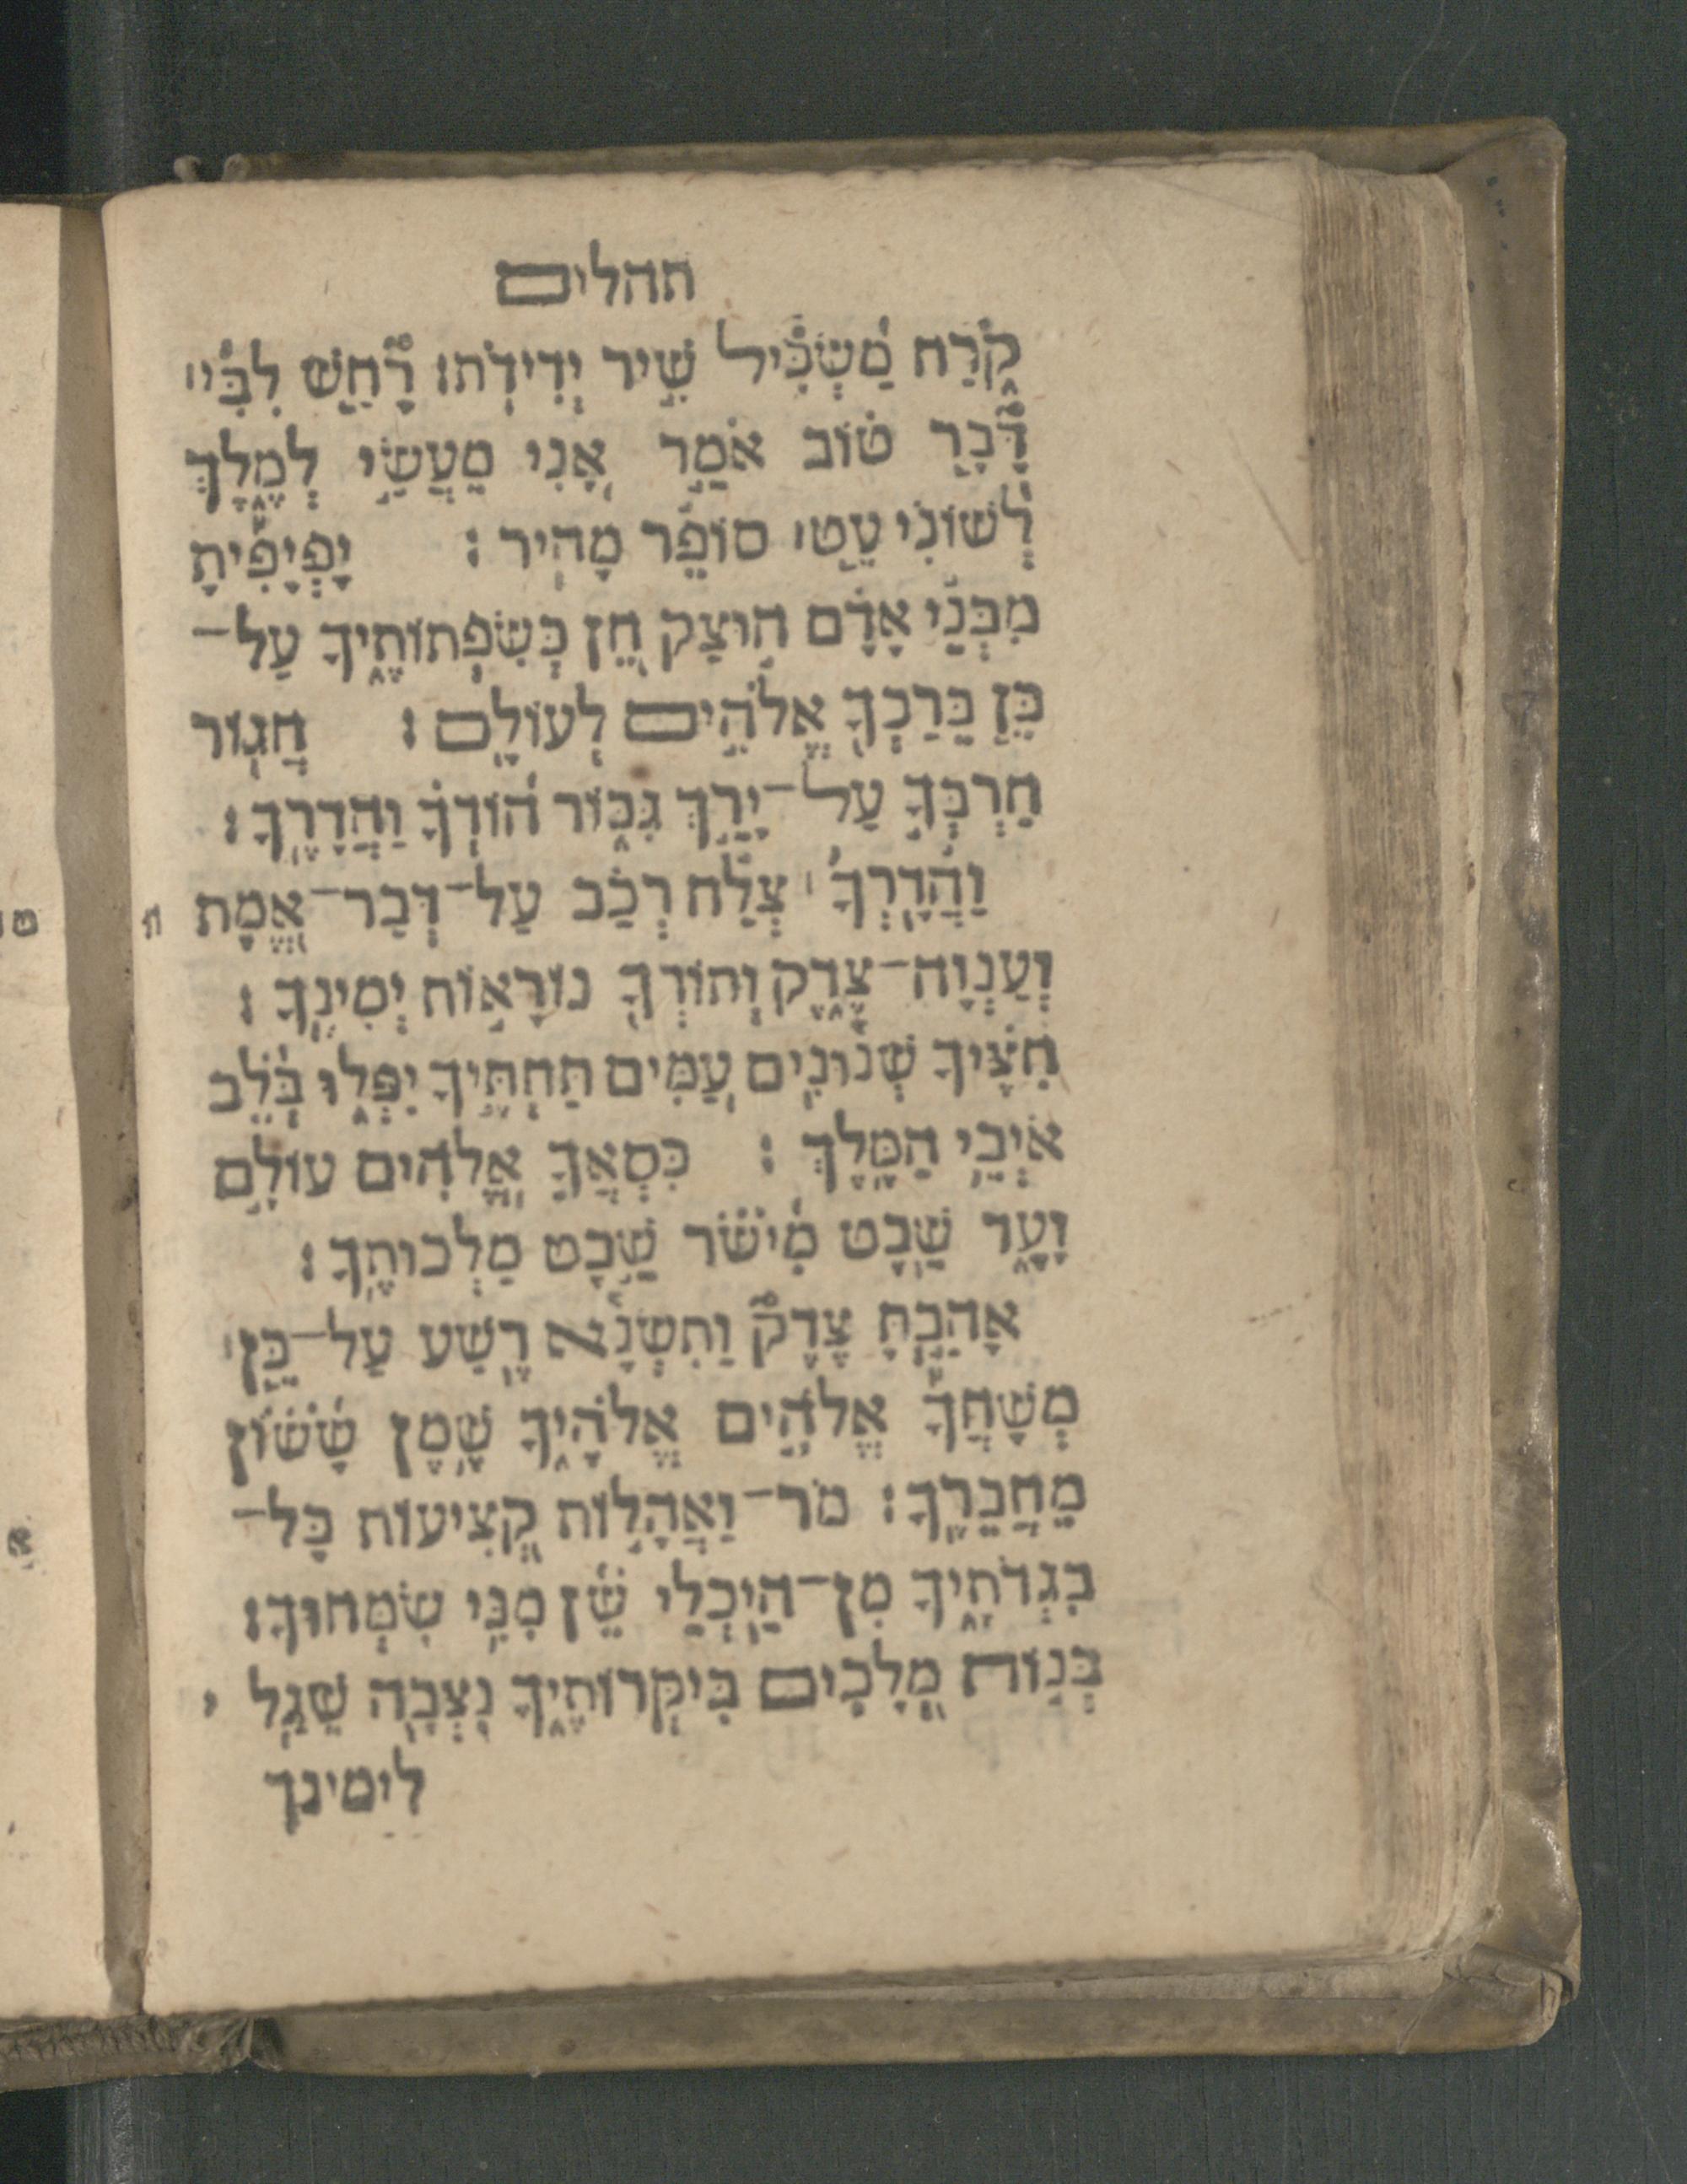 תהלים
קֹ֑רַח מַ֝שְׂכִּ֗יל שִׁ֣יר יְדִידֹֽת׃ רָ֘חַ֤שׁ לִבִּ֨י ׀
דָּ֘בָ֤ר ט֗וֹב אֹמֵ֣ר אָ֭נִי מַעֲשַׂ֣י לְמֶ֑לֶךְ
לְ֝שׁוֹנִ֗י עֵ֤ט ׀ סוֹפֵ֬ר מָהִֽיר ׃ יָפְיָפִ֡יתָ
מִבְּנֵ֬י אָדָ֗ם ה֣וּצַק חֵ֭ן בְּשִׂפְתוֹתֶ֑יךָ עַל־
כֵּ֤ן בֵּֽרַכְךָ֖ אֱלֹהִ֣ים לְעוֹלָֽם ׃ חֲגֽוֹר
חַרְבְּךָ֣ עַל־יָרֵ֣ךְ גִּבּ֑וֹר ה֝וֹדְךָ֗ וַהֲדָרֶֽךָ ׃
וַהֲדָ֬רְךָ֨ ׀ צְלַ֬ח רְכַ֗ב עַֽל־דְּבַר־אֱ֭מֶת ה
וְעַנְוָה־צֶ֑דֶק וְתוֹרְךָ֖ נוֹרָא֣וֹת יְמִינֶֽךָ ׃
חִצֶּ֗יךָ שְׁנ֫וּנִ֥ים עַ֭מִּים תַּחְתֶּ֣יךָ יִפְּל֑וּ בְּ֝לֵ֗ב
אֹיְבֵ֥י הַמֶּֽלֶךְ ׃ כִּסְאֲךָ֣ אֱ֭לֹהִים עוֹלָ֣ם
וָעֶ֑ד שֵׁ֥בֶט מִ֝ישֹׁ֗ר שֵׁ֣בֶט מַלְכוּתֶֽךָ ׃
אָהַ֣בְתָּ צֶּדֶק֮ וַתִּשְׂנָ֫א רֶ֥שַׁע עַל־כֵּ֤ן ׀
מְשָׁחֲךָ֡ אֱלֹהִ֣ים אֱלֹהֶ֑יךָ שֶׁ֥מֶן שָׂ֝שׂ֗וֹן
מֵֽחֲבֵרֶֽךָ ׃ מֹר־וַאֲהָל֣וֹת קְ֭צִיעוֹת כָּל־
בִּגְדֹתֶ֑יךָ מִֽן־הֵ֥יכְלֵי שֵׁ֝֗ן מִנִּ֥י שִׂמְּחֽוּךָ׃
בְּנ֣וֹת מְ֭לָכִים בִּיקְּרוֹתֶ֑יךָ נִצְּבָ֥ה שֵׁגַ֥ל י
לימינך